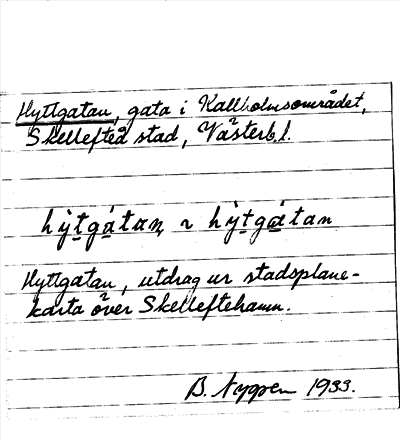 Hyttgatan, gata i Kallholmsområdet,
Skellefteå stad, Västerb.l.
hỳt̲gá̲tan̥ ~ hỳt̲gá̲tan
Hyttgatan, utdrag ur stadsplane-
karta över Skelleftehamn.
B. Nygren 1933.